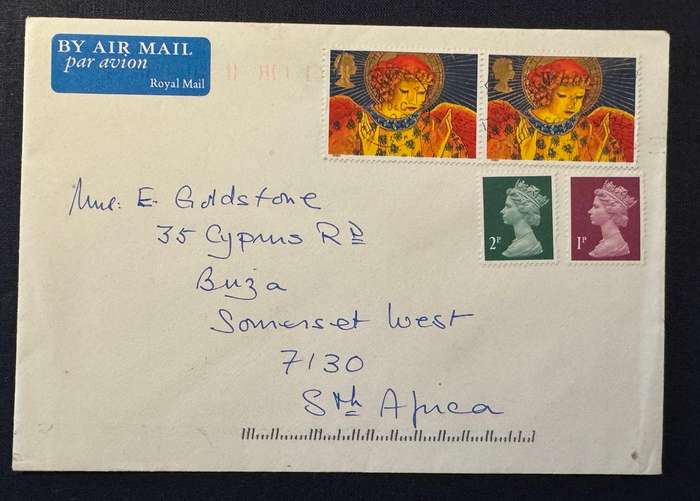 BY AIR MAIL
par avion
Royal Mail
2P
1P
E. Goldstone
35 Cyprus RD
Briza
Somerset West
7130
Sth Africa